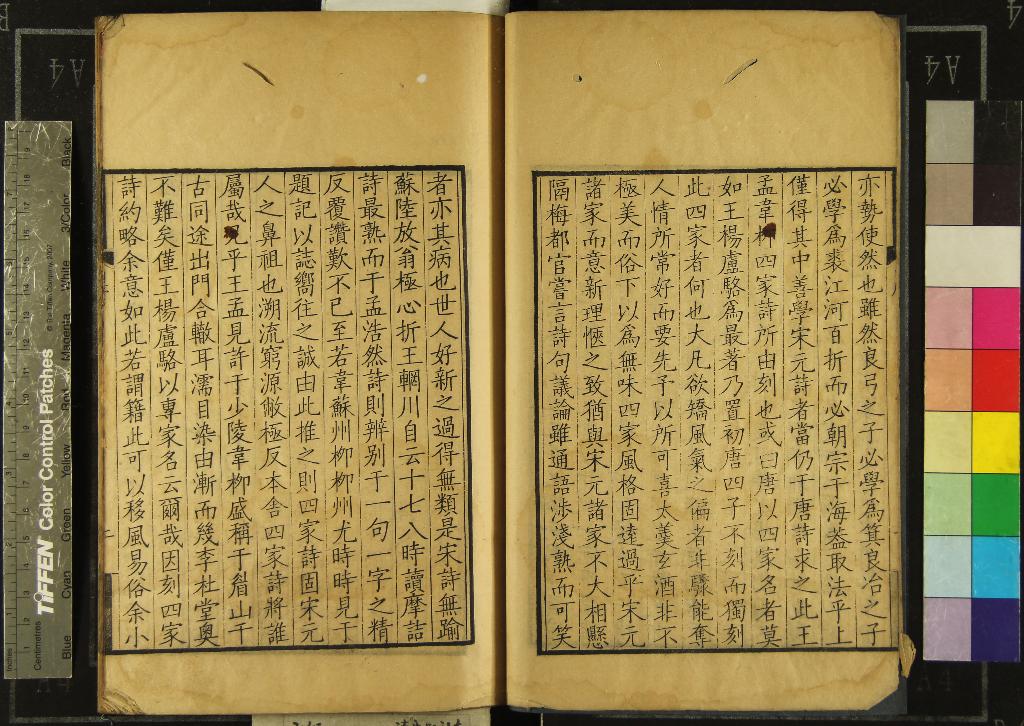 亦勢使然也雖然良弓之子必學爲箕良冶之子
必學爲裘江河百折而必朝宗于海葢取法乎上
僅得其中善學宋元詩者當仍于唐詩求之此王
孟韋柳四家詩所由刻也或曰唐以四家名者莫
如王楊盧駱爲最著乃置初唐四子不刻而獨刻
此四家者何也大凡欲矯風氣之偏者非驟能奪
人情所常好而要先予以所可喜太羹玄酒非不
極美而俗下以爲無味四家風格固遠過乎宋元
諸家而意新理愜之致猶與宋元諸家不大相懸
隔梅都官嘗言詩句議論雖通語涉淺熟而可笑
者亦其病也世人好新之過得無類是宋詩無踰
蘇陸放翁極心折王輞川自云十七八時讀摩詰
詩最熟而于孟浩然詩則辨别于一句一字之精
反覆讚歎不已至若韋蘇州柳柳州尤時時見于
題記以誌嚮往之誠由此推之則四家詩固宋元
人之鼻祖也溯流窮源敝極反本舎四家詩將誰
屬哉况乎王孟見許于少陵韋柳盛稱于眉山千
古同途出門合轍耳濡目染由漸而幾李杜堂奧
不難矣僅王楊盧駱以專家名云爾哉因刻四家
詩約略余意如此若謂籍此可以移風易俗余小
TIFFEN Color Control Patches
© The Tiffen Company, 2007
Inches
Centimetres
Blue
Cyan
Green
Yellow
Red
Magenta
White
3/Color
Black
A4
A4